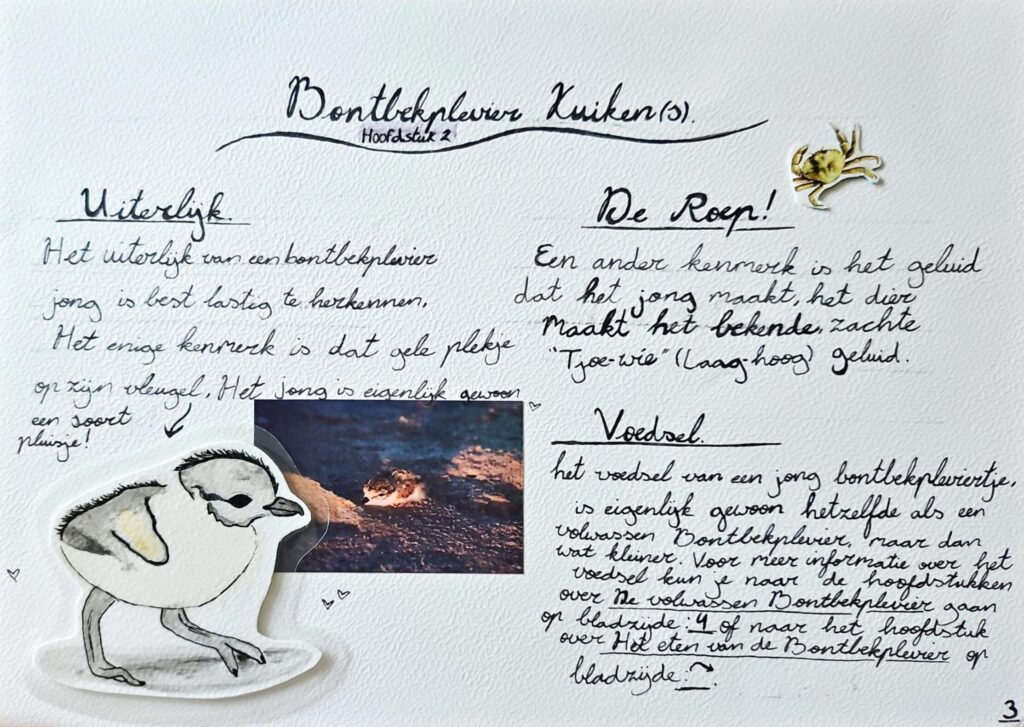 Bontbekplevier Kuiken(s).
Hoofdstuk 2
Uiterlijk.
Het uiterlijk van een bontbekplevier
jong is best lastig te herkennen.
Het enige kenmerk is dat gele plekje
op zijn vleugel. Het jong is eigenlijk gewoon
een soort
pluisje!
De Roep!
Een ander kenmerk is het geluid
dat het jong maakt, het dier
maakt het bekende, zachte
"Tjoe-wie" (Laag-hoog) geluid.
Voedsel.
het voedsel van een jong bontbekpleviertje,
is eigenlijk gewoon hetzelfde als een
volwassen Bontbekplevier, maar dan
wat kleiner. Voor meer informatie over het
voedsel kun je naar de hoofdstukken
over De volwassen Bontbekplevier gaan
op bladzijde: 4 of naar het hoofdstuk
over Het eten van de Bontbekplevier op
bladzijde:
3